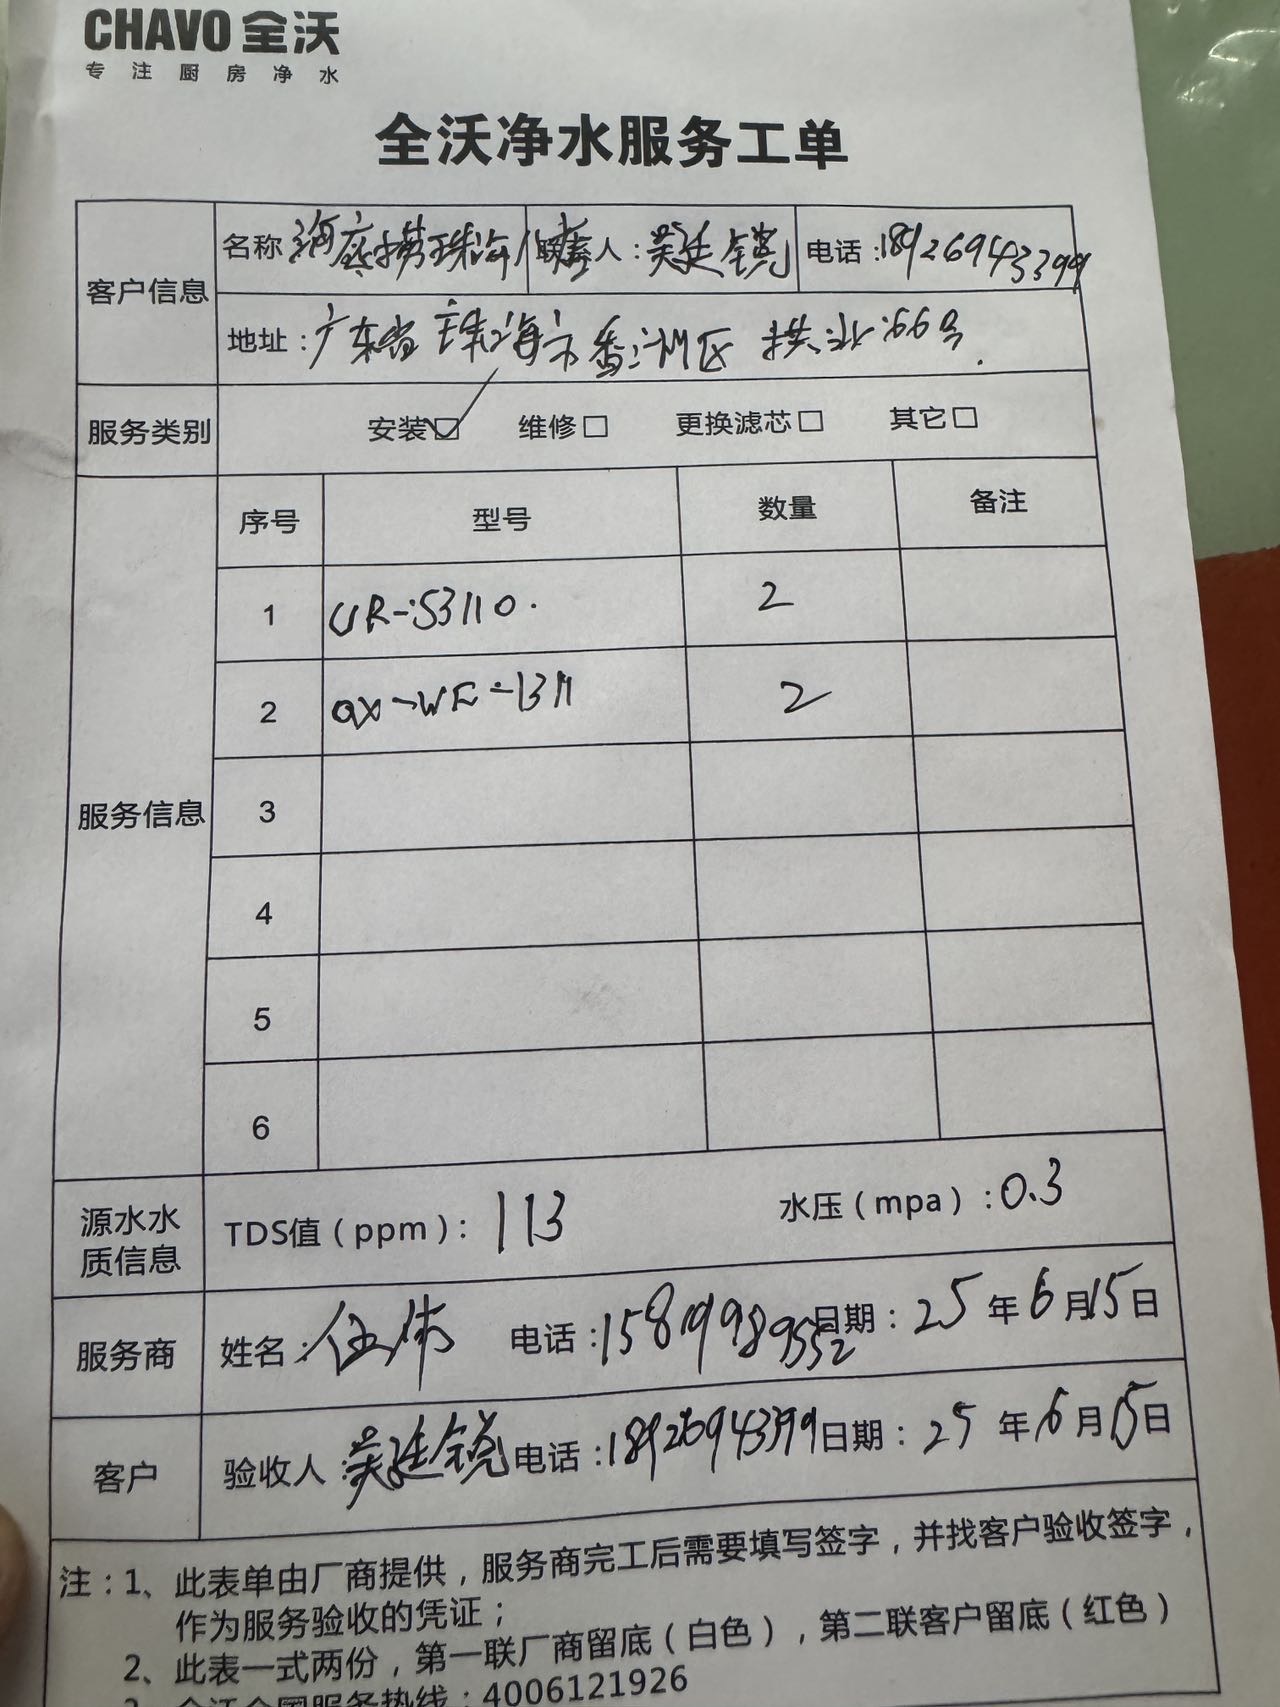 CHAVO 全沃
专注厨房净水
全沃净水服务工单
客户信息
名称 海底捞珠海 联系人：吴廷锐 电话：18926943399
地址：广东省珠海市香洲区拱北66号.
服务类别 安装☑ 维修□ 更换滤芯□ 其它□
服务信息
序号 型号 数量 备注
1 UR-S3110. 2
2 QX-WF-1311 2
3
4
5
6
源水水质信息 TDS值（ppm）：113 水压（mpa）：0.3
服务商 姓名：伍伟 电话：15819989552 日期：25年6月15日
客户 验收人：吴廷锐 电话：18926943399 日期：25年6月15日
注：1、此表单由厂商提供，服务商完工后需要填写签字，并找客户验收签字，
作为服务验收的凭证；
2、此表一式两份，第一联厂商留底（白色），第二联客户留底（红色）
3、全沃全国服务热线：4006121926